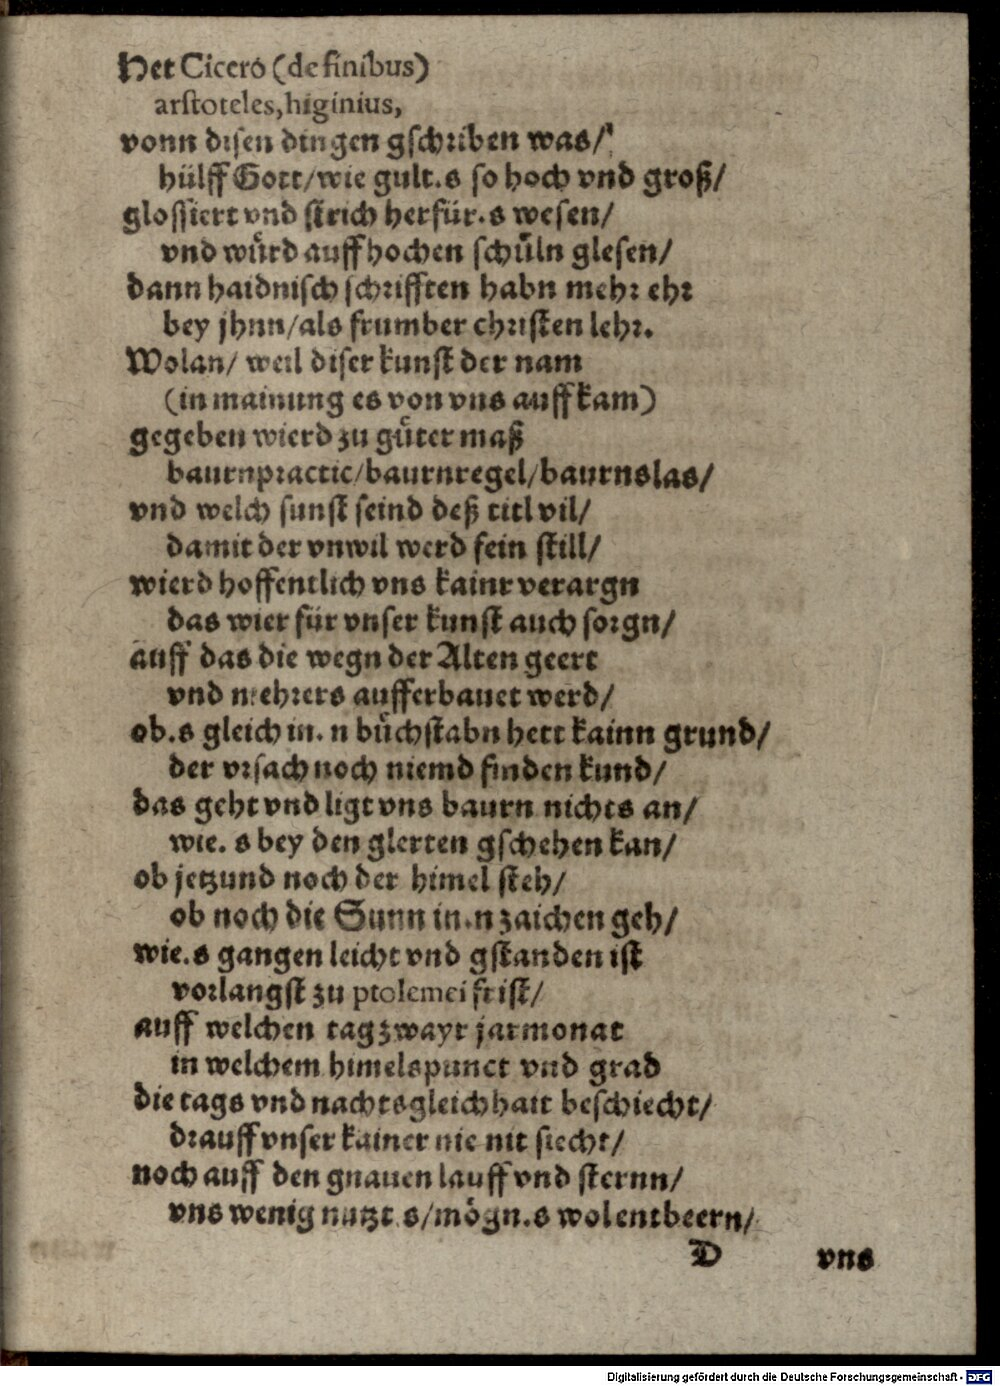 Het Ciceró (de finibus)
arstoteles, higinius,
vonn disen dingen gschriben was/
hülff Gott/wie gult.s so hoch vnd groß/
glossiert vnd strich herfür.s wesen/
vnd wuͤrd auff hochen schuͤln glesen/
dann haidnisch schrifften habn mehr ehr
bey jhnn/als frumber christen lehr.
Wolan/ weil diser kunst der nam
(in mainung es von vns auff kam)
gegeben wierd zu guͤter maß
baurnpractic/baurnregel/baurnslas/
vnd welch sunst seind deß titl vil/
damit der vnwil werd fein still/
wierd hoffentlich vns kainr verargn
das wier für vnser kunst auch sorgn/
auff das die wegn der Alten geert
vnd mehrers aufferbauet werd/
ob.s gleich in.n buͤchstabn hett kainn grund/
der vrsach noch niemd finden kund/
das geht vnd ligt vns baurn nichts an/
wie.s bey den glerten gschehen kan/
ob jetzund noch der himel steh/
ob noch die Sunn in.n zaichen geh/
wie.s gangen leicht vnd gstanden ist
vorlangst zu ptolemei frist/
auff welchen tag zwayr jarmonat
in welchem himelspunct vnd grad
die tags vnd nachtsgleichhait beschiecht/
drauff vnser kainer nie nit siecht/
noch auff den gnauen lauff vnd sternn/
vns wenig nutzt.s/mögn.s wol entbeern/
D vns
Digitalisierung gefördert durch die Deutsche Forschungsgemeinschaft - DFG